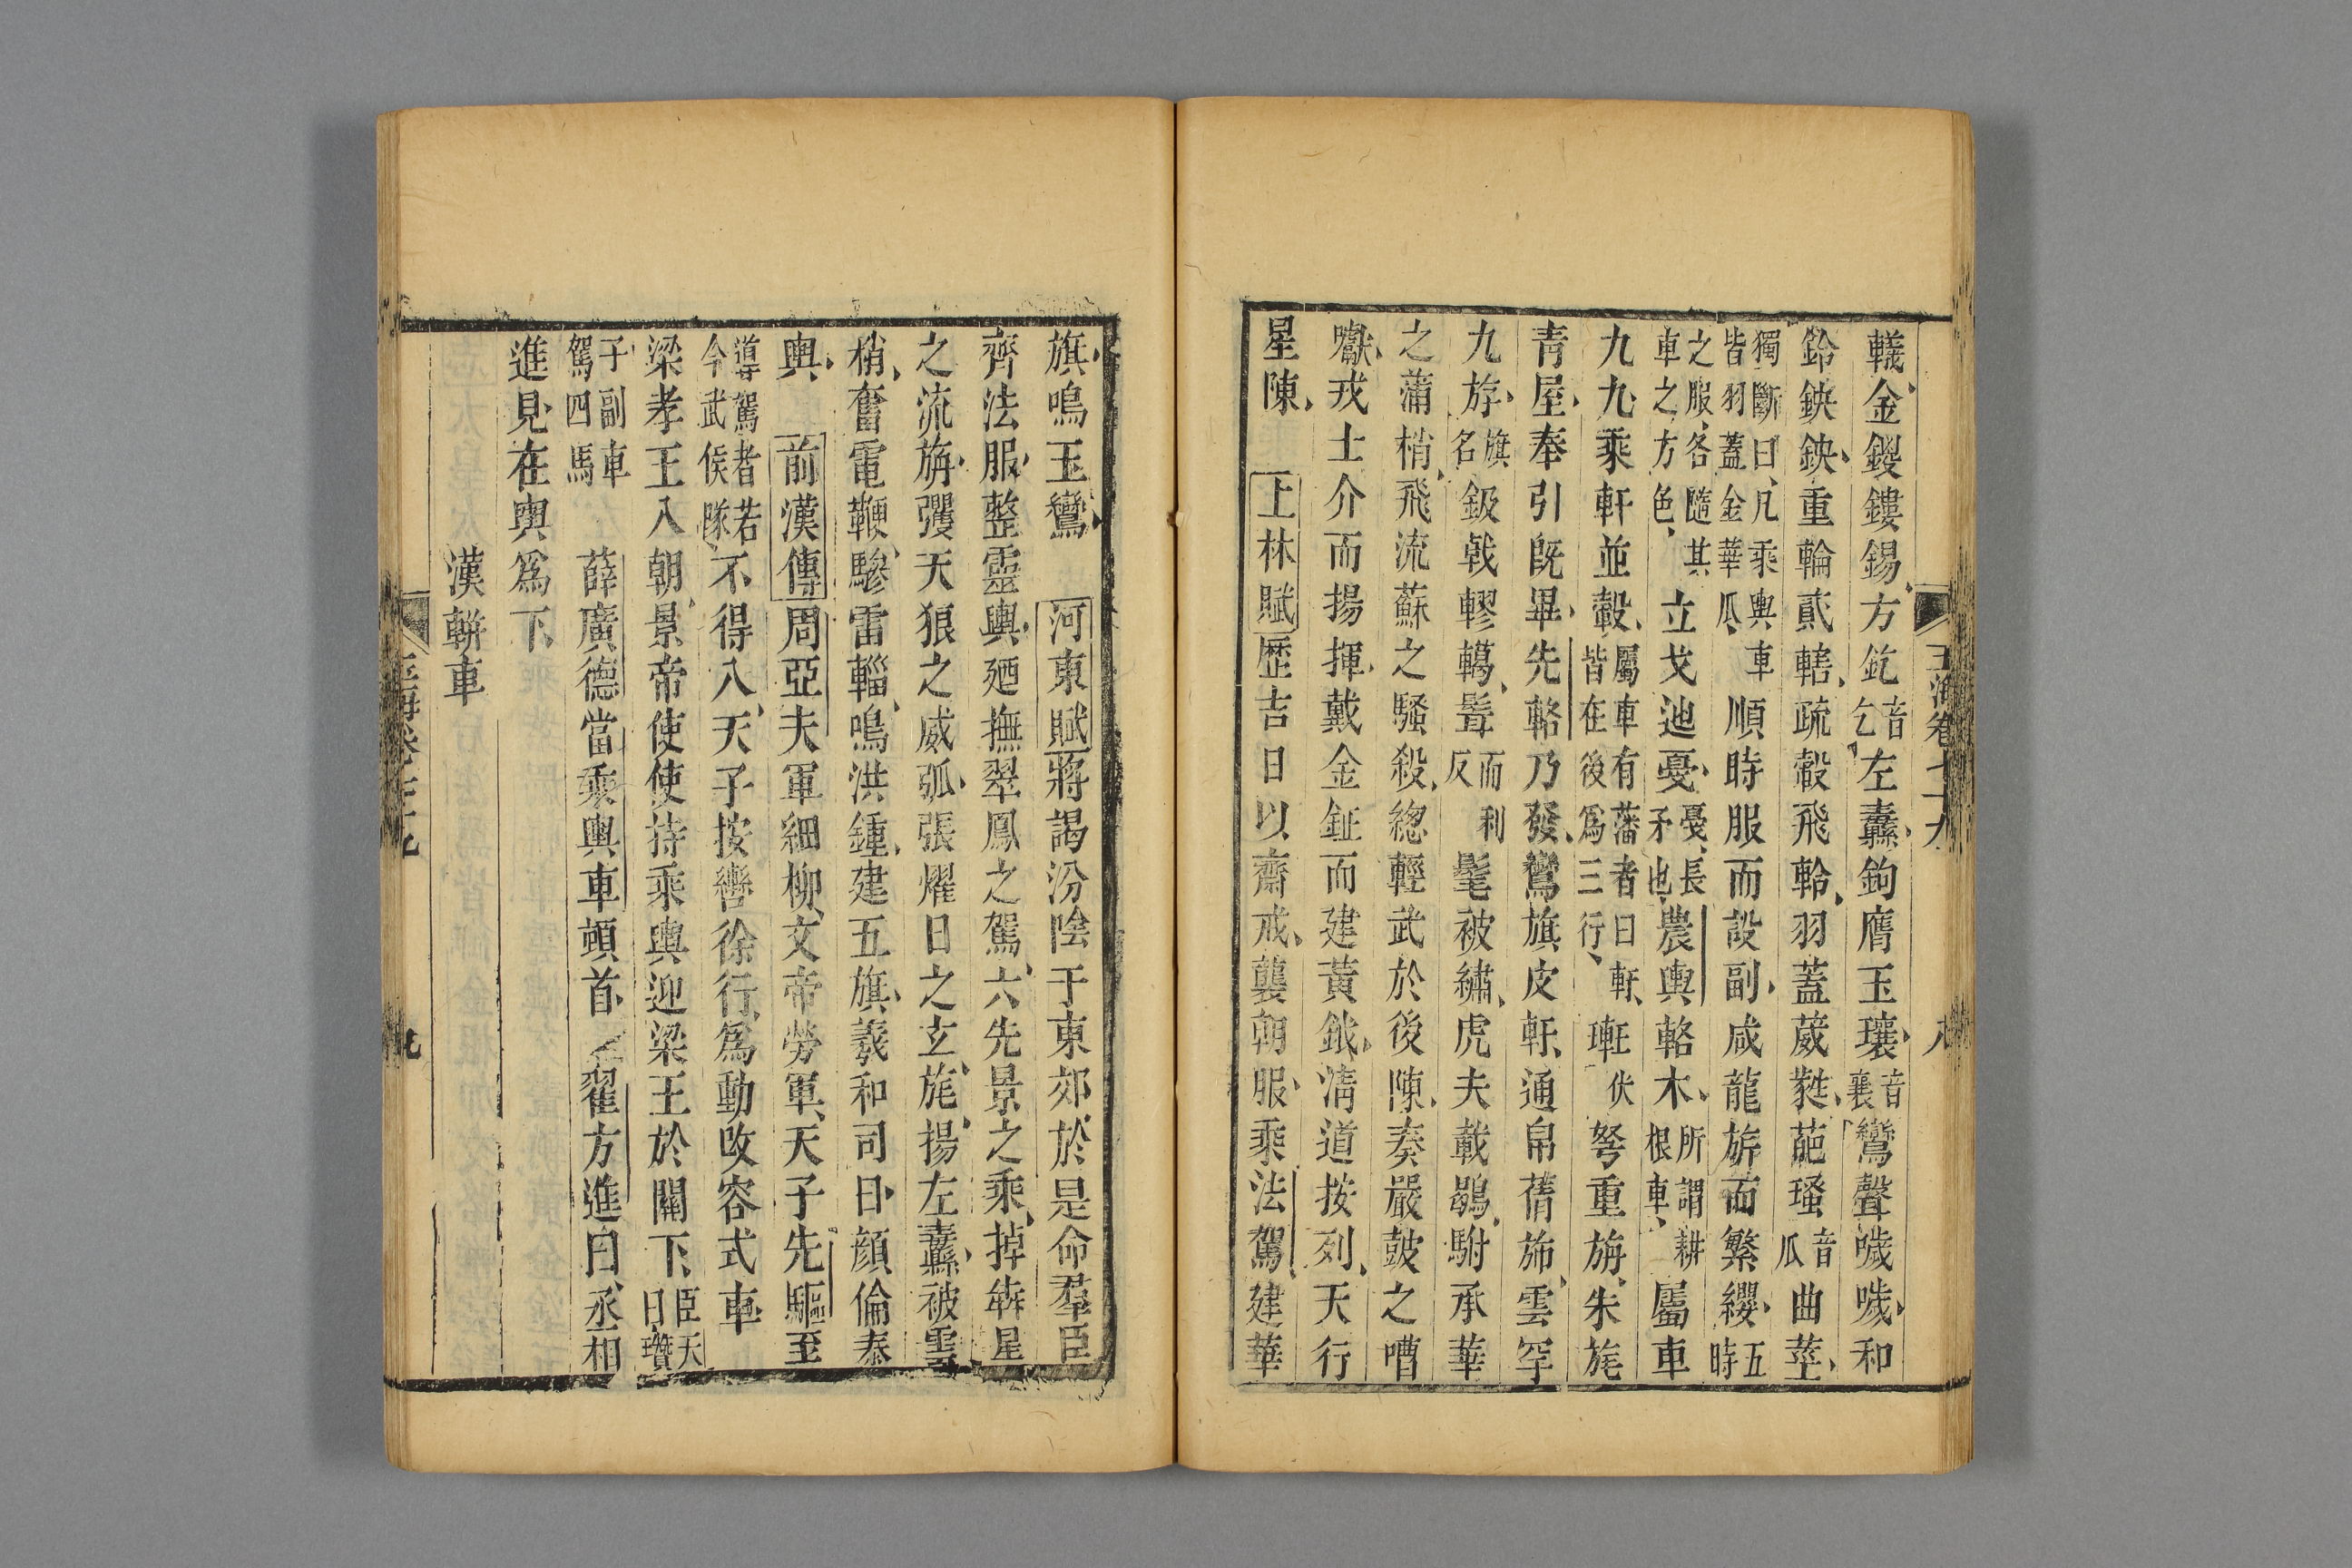 玉海卷七十九 八
轙金鍐鏤錫方釳音乞左纛鉤膺玉瓖音襄鸞聲噦噦和
鈴鉠鉠重輪貳轄疏轂飛軨羽蓋葳蕤葩瑵音瓜曲莖
獨斷曰凡乘輿車皆羽蓋金華瓜順時服而設副咸龍旂而繁纓五時
之服各隨其車之方色立戈迆戞戞長矛也農輿輅木所謂耕根車屬車
九九乘軒並轂屬車有藩者曰軒皆在後為三行㻍伏弩重旃朱旄
青屋奉引既畢先輅乃發鸞旗皮軒通帛綪斾雲罕
九斿旗名鈒戟轇轕髶而利反髦被繡虎夫戴鶡駙承華
之蒲梢飛流蘇之騷殺總輕武於後陳奏嚴鼓之嘈
囐戎士介而揚揮戴金鉦而建黃鉞清道按列天行
星陳 上林賦歷吉日以齋戒襲朝服乘法駕建華
旗鳴玉鸞 河東賦將謁汾陰于東郊於是命羣臣
齊法服整靈輿廼撫翠鳳之駕六先景之乘掉犇星
之流旃彏天狼之威弧張燿日之玄旄揚左纛被雲
梢奮電鞭驂雷輜鳴洪鍾建五旗羲和司日顏倫奉
輿 前漢傳周亞夫軍細柳文帝勞軍天子先驅至
導駕者若今武侯隊不得入天子按轡徐行為動改容式車
梁孝王入朝景帝使使持乘輿迎梁王於闕下臣瓚曰天
子副車駕四馬 薛廣德當乘輿車頓首 翟方進曰丞相
進見在輿為下
漢輧車
玉海卷七十九 九